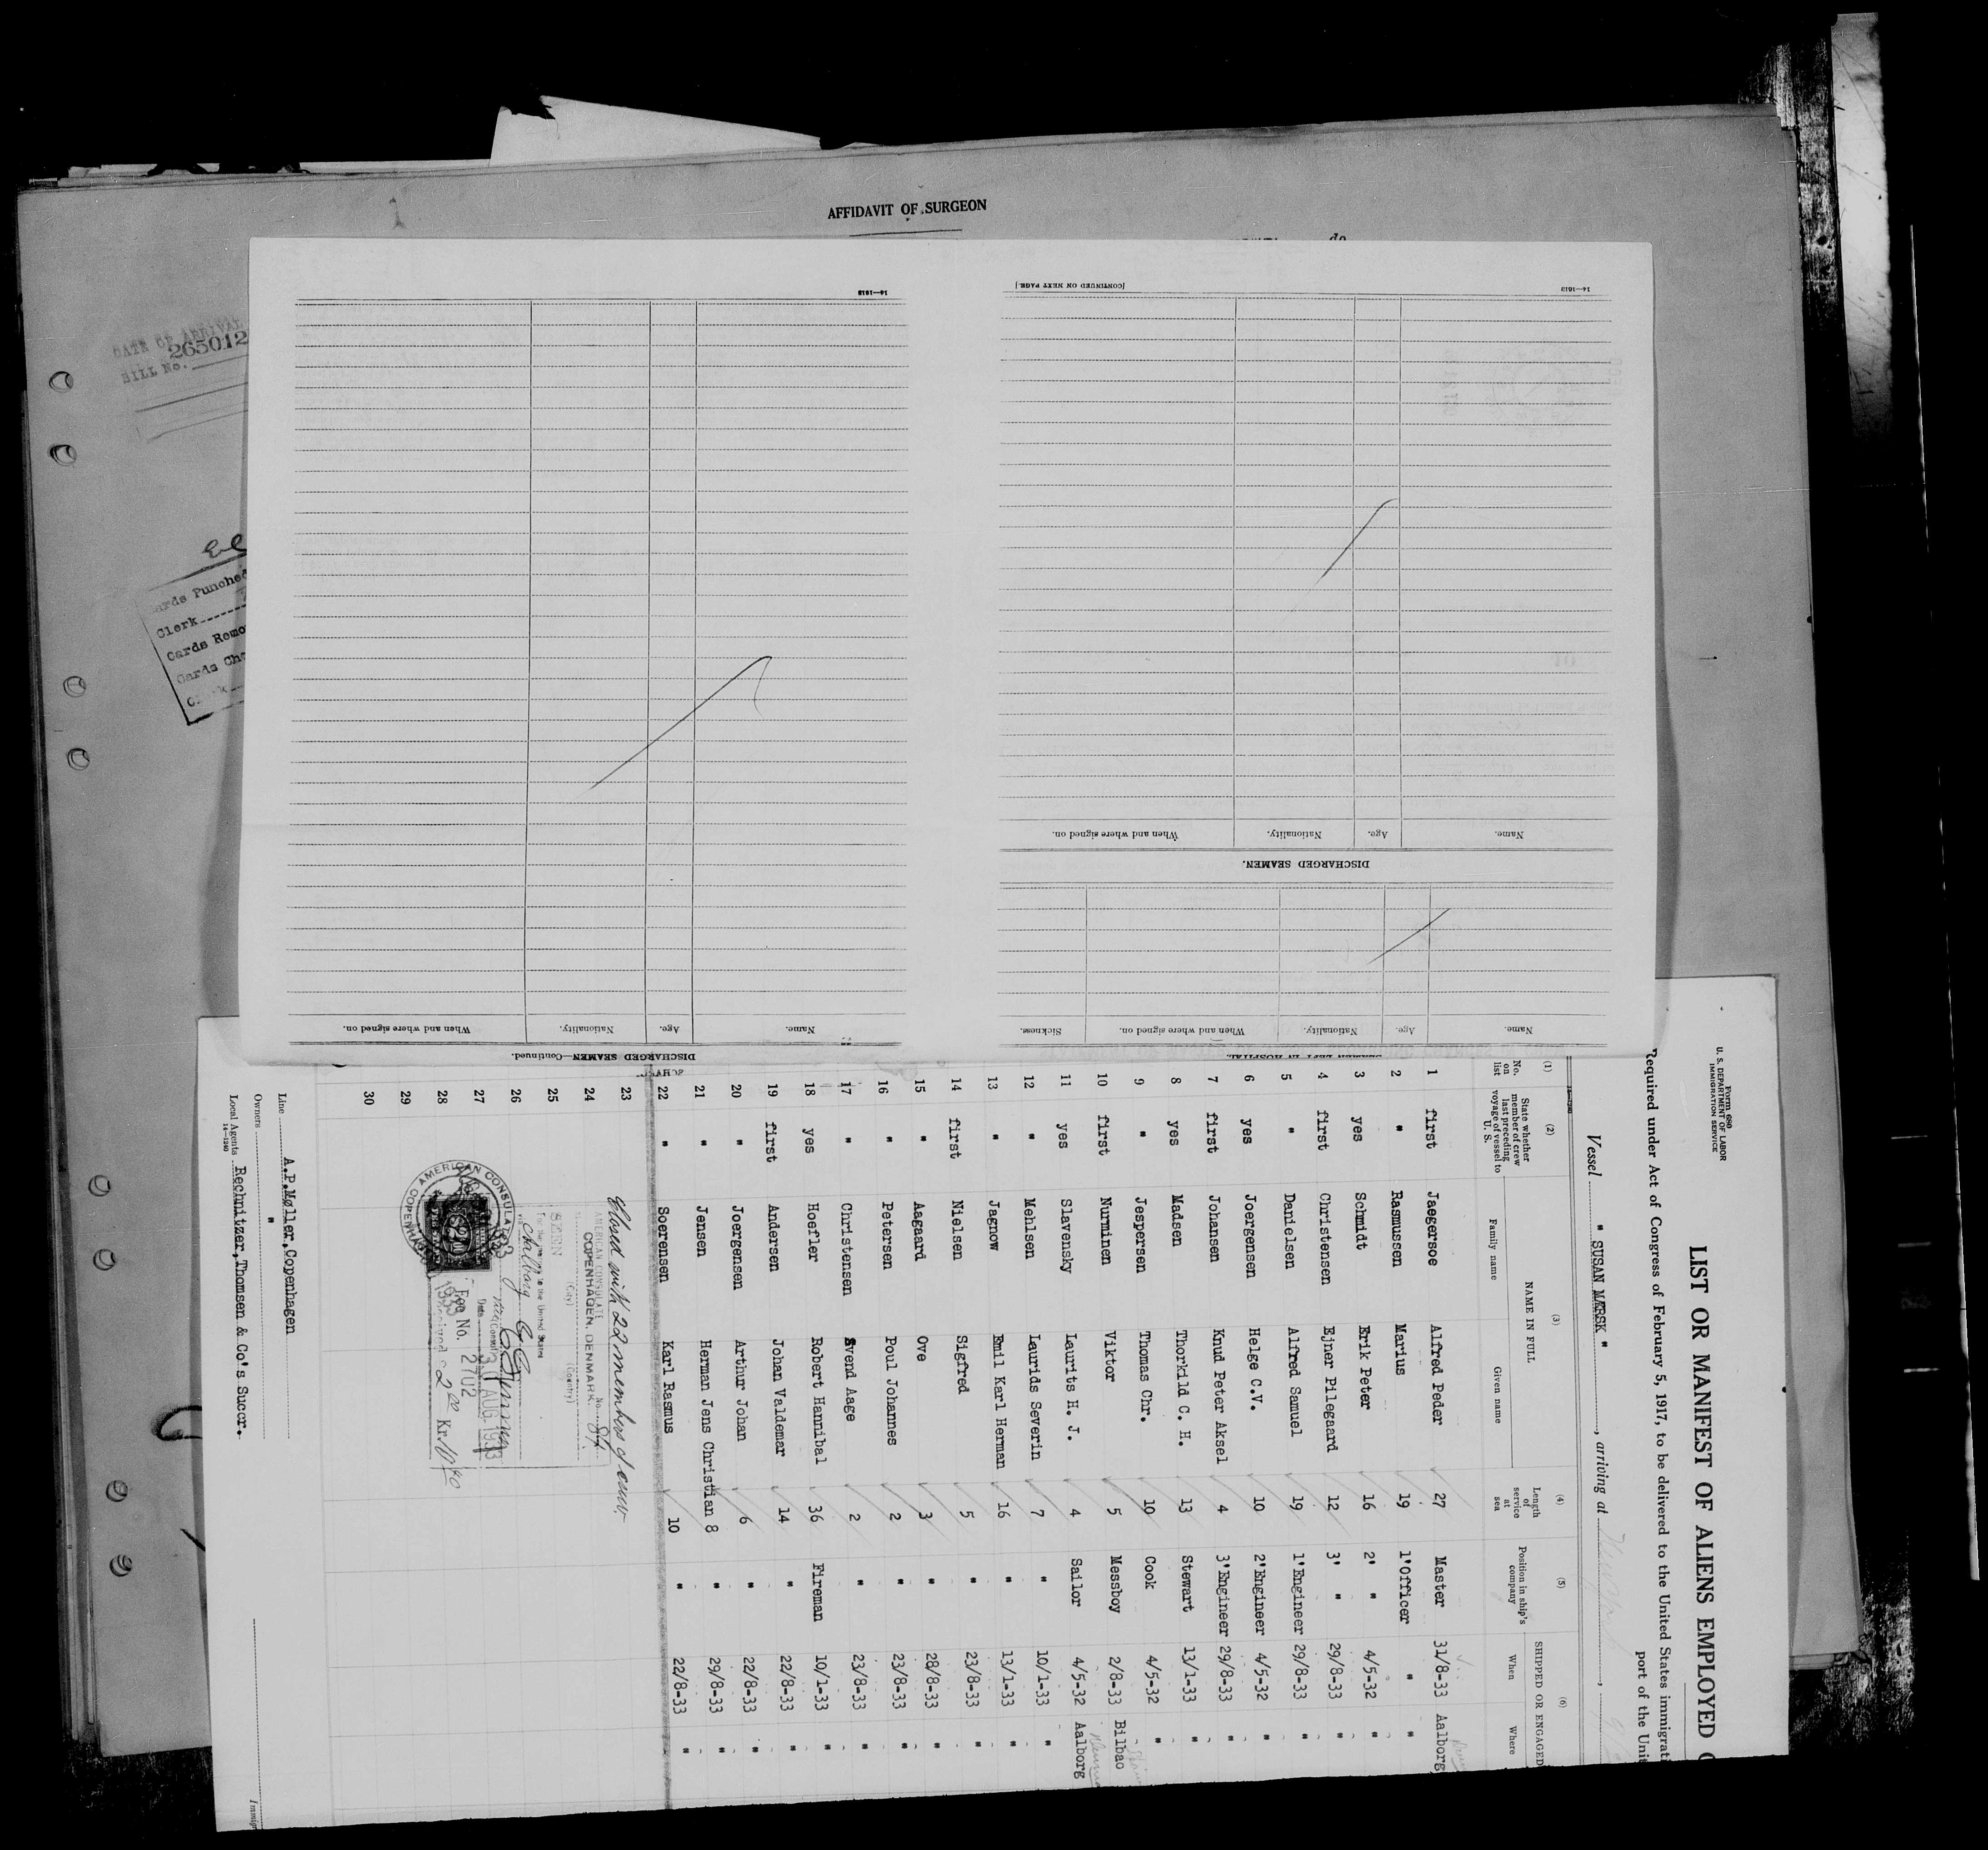 AFFIDAVIT OF SURGEON
DATE OF ARRIVAL
265012
BILL No.
Cards Punched
Clerk
Cards Remo
Cards Che
14—1613
[CONTINUED ON NEXT PAGE.]
Name. Age. Nationality. When and where signed on.
DISCHARGED SEAMEN.
Name. Age. Nationality. When and where signed on. Sickness.
14—1613
Name. Age. Nationality. When and where signed on.
DISCHARGED SEAMEN—Continued.
Form 680
U. S. DEPARTMENT OF LABOR
IMMIGRATION SERVICE
LIST OR MANIFEST OF ALIENS EMPLOYED
Required under Act of Congress of February 5, 1917, to be delivered to the United States immigrati
port of the Unit
Vessel " SUSAN MÆRSK " , arriving at
(1) (2) (3) (4) (5) (6)
No. on list State whether member of crew last preceding voyage of vessel to U. S. NAME IN FULL Family name Given name Length of service at sea Position in ship's company SHIPPED OR ENGAGED When Where
1 first Jaegersoe Alfred Peder 27 Master 31/8-33 Aalborg
2 " Rasmussen Marius 19 1'Officer " "
3 yes Schmidt Erik Peter 16 2' " 4/5-32 "
4 first Christensen Ejner Pilegaard 12 3' " 29/8-33 "
5 " Danielsen Alfred Samuel 19 1'Engineer 29/8-33 "
6 yes Joergensen Helge C.V. 10 2'Engineer 4/5-32 "
7 first Johansen Knud Peter Aksel 4 3'Engineer 29/8-33 "
8 yes Madsen Thorkild C. H. 13 Stewart 13/1-33 "
9 " Jespersen Thomas Chr. 10 Cook 4/5-32 "
10 first Nurminen Viktor 5 Messboy 2/8-33 Bilbao
11 yes Slavensky Laurits H. J. 4 Sailor 4/5-32 Aalborg
12 " Mehlsen Laurids Severin 7 " 10/1-33 "
13 " Jagnow Emil Karl Herman 16 " 13/1-33 "
14 first Nielsen Sigfred 5 " 23/8-33 "
15 " Aagaard Ove 3 " 28/8-33 "
16 " Petersen Poul Johannes 2 " 23/8-33 "
17 " Christensen Svend Aage 2 " 23/8-33 "
18 yes Hoefler Robert Hannibal 36 Fireman 10/1-33 "
19 first Andersen Johan Valdemar 14 " 22/8-33 "
20 " Joergensen Arthur Johan 6 " 22/8-33 "
21 " Jensen Herman Jens Christian 8 " 29/8-33 "
22 " Soerensen Karl Rasmus 10 " 22/8-33 "
23
24
25
26
27
28
29
30
Closed with 22 members of crew.
AMERICAN CONSULATE
COPENHAGEN, DENMARK.
No. 84.
SEEN
(City) (Country)
For the journey to the United States
via Aalborg
Date 31 AUG. 1933
Fee No. 2702
Kr. 10.80
AMERICAN CONSULATE
Line A.P.Møller, Copenhagen
Owners "
Local Agents Rechnitzer, Thomsen & Co's Succr.
14—1240
Immigr